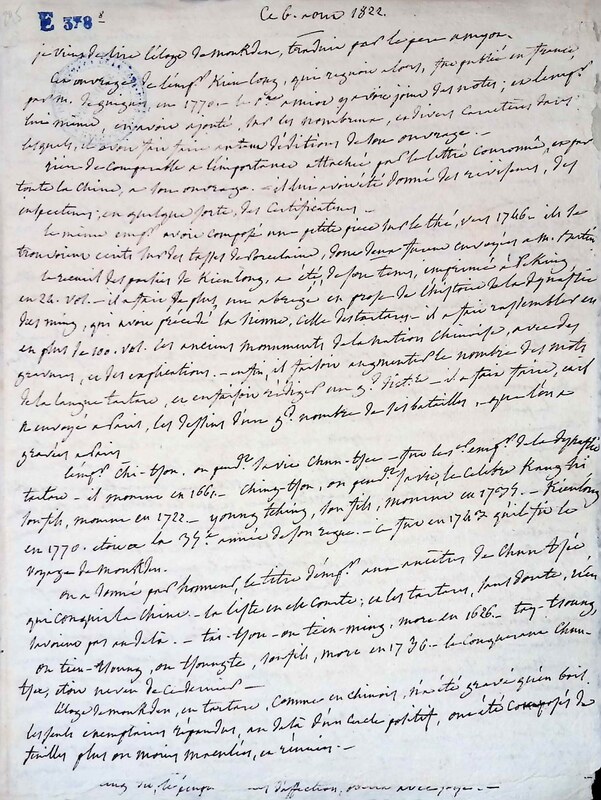 E 378 8
Ce 6. aout 1822.
je viens de lire l'éloge de moukden, traduit par le pere amyot.
Cet ouvrage de l'emp.r Kien long, qui regnoit alors, fut publié en france,
par m. de guignes en 1770. le p.re amiot y avoit joint des notes; et l'emp.r
lui même, en avoit ajouté, sur les nombreux, et divers Caractères dans
lesquels, il avoit fait faire autant d'éditions de son ouvrage. —
rien de comparable a l'importance attachée par le lettré couronné, et par
toute la Chine, a son ouvrage. — il lui avoit été donné des reviseurs, des
inspecteurs, en quelque sorte, des Certificateurs —
le même emp.r avoit composé une petite piece sur le thé, vers 1746 — ils la
trouvoient ecrite sur des tasses de porcelaine, dont deux furent envoyées a m. Bertin
le recueil des poesies de Kien long, a été, de son tems, imprimé a Peking
en 24. vol. — il a fait de plus, un abregé en prose de l'histoire de la dynastie
des ming, qui avoit précédé la sienne, celle des tartares — il a fait rassembler en
en plus de 100. vol. les anciens monuments de la nation Chinoise, avec des
gravures, et des explications. — enfin, il faisoit augmenter le nombre des mots
de la langue tartare, et en faisoit rédiger un g.d — il a fait faire, et il
a envoyé a Paris, les dessins d'un g.d nombre de ses batailles, que l'on a
gravées a Paris
l'emp.r Chi-tsou, ou pend.t sa vie Chun-tché — fut le 1.er emp.r de la dynastie
tartare — il mourut en 1661. — Ching-tsou, ou pend.t sa vie le Celebre Kang hi
son fils, mourut en 1722 — young tching, son fils, mourut en — Kien long
en 1770. étoit a la 35.e année de son regne. — ce fut en qu'il fit le
voyage de moukden.
on a donné par honneur, le titre d'emp.r aux ancêtres de Chun tché
qui conquit la Chine. — la liste en est Courte; et les tartares, sans doute, n'en
savoient pas au delà. — tai-tsou — ou tien-ming, mort en 1626. — tay-tsoung,
ou tien-tsoung, ou tsoungté, son fils, mort en — le conquerant Chun-
tché, étoit neveu de ce dernier —
l'éloge de moukden, en tartare, comme en chinois, n'a été gravé qu'en bois.
les seuls exemplaires répandus, au delà d'un cercle positif, ont été composés de
feuilles plus ou moins maculées, et réunies. —
d'affection, avec joye. —